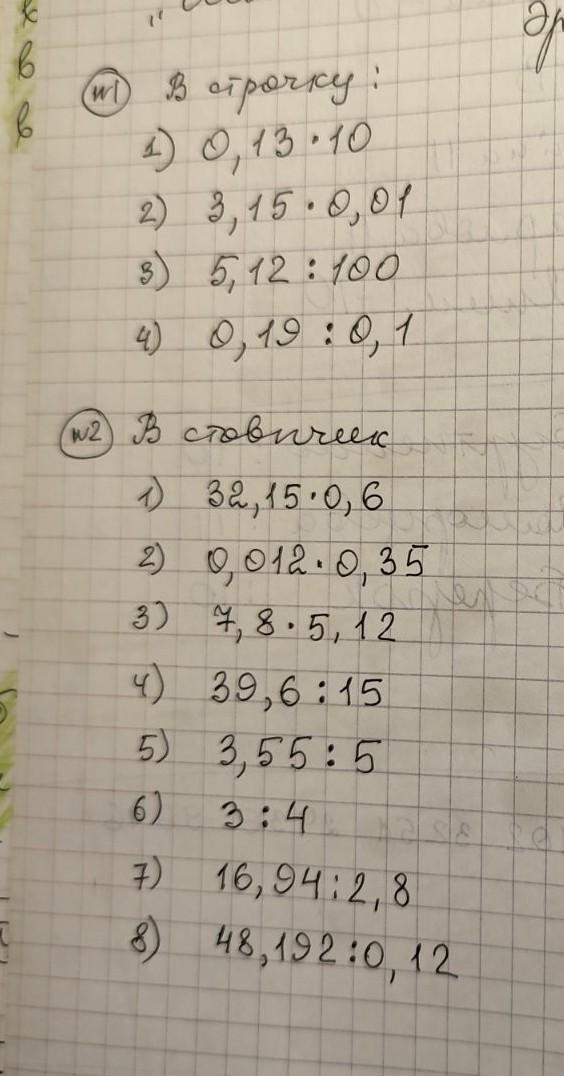 №1 В строчку:
1) 0,13·10
2) 3,15·0,01
3) 5,12:100
4) 0,19:0,1
№2 В стовпчик
1) 32,15·0,6
2) 0,012·0,35
3) 7,8·5,12
4) 39,6:15
5) 3,55:5
6) 3:4
7) 16,94:2,8
8) 48,192:0,12